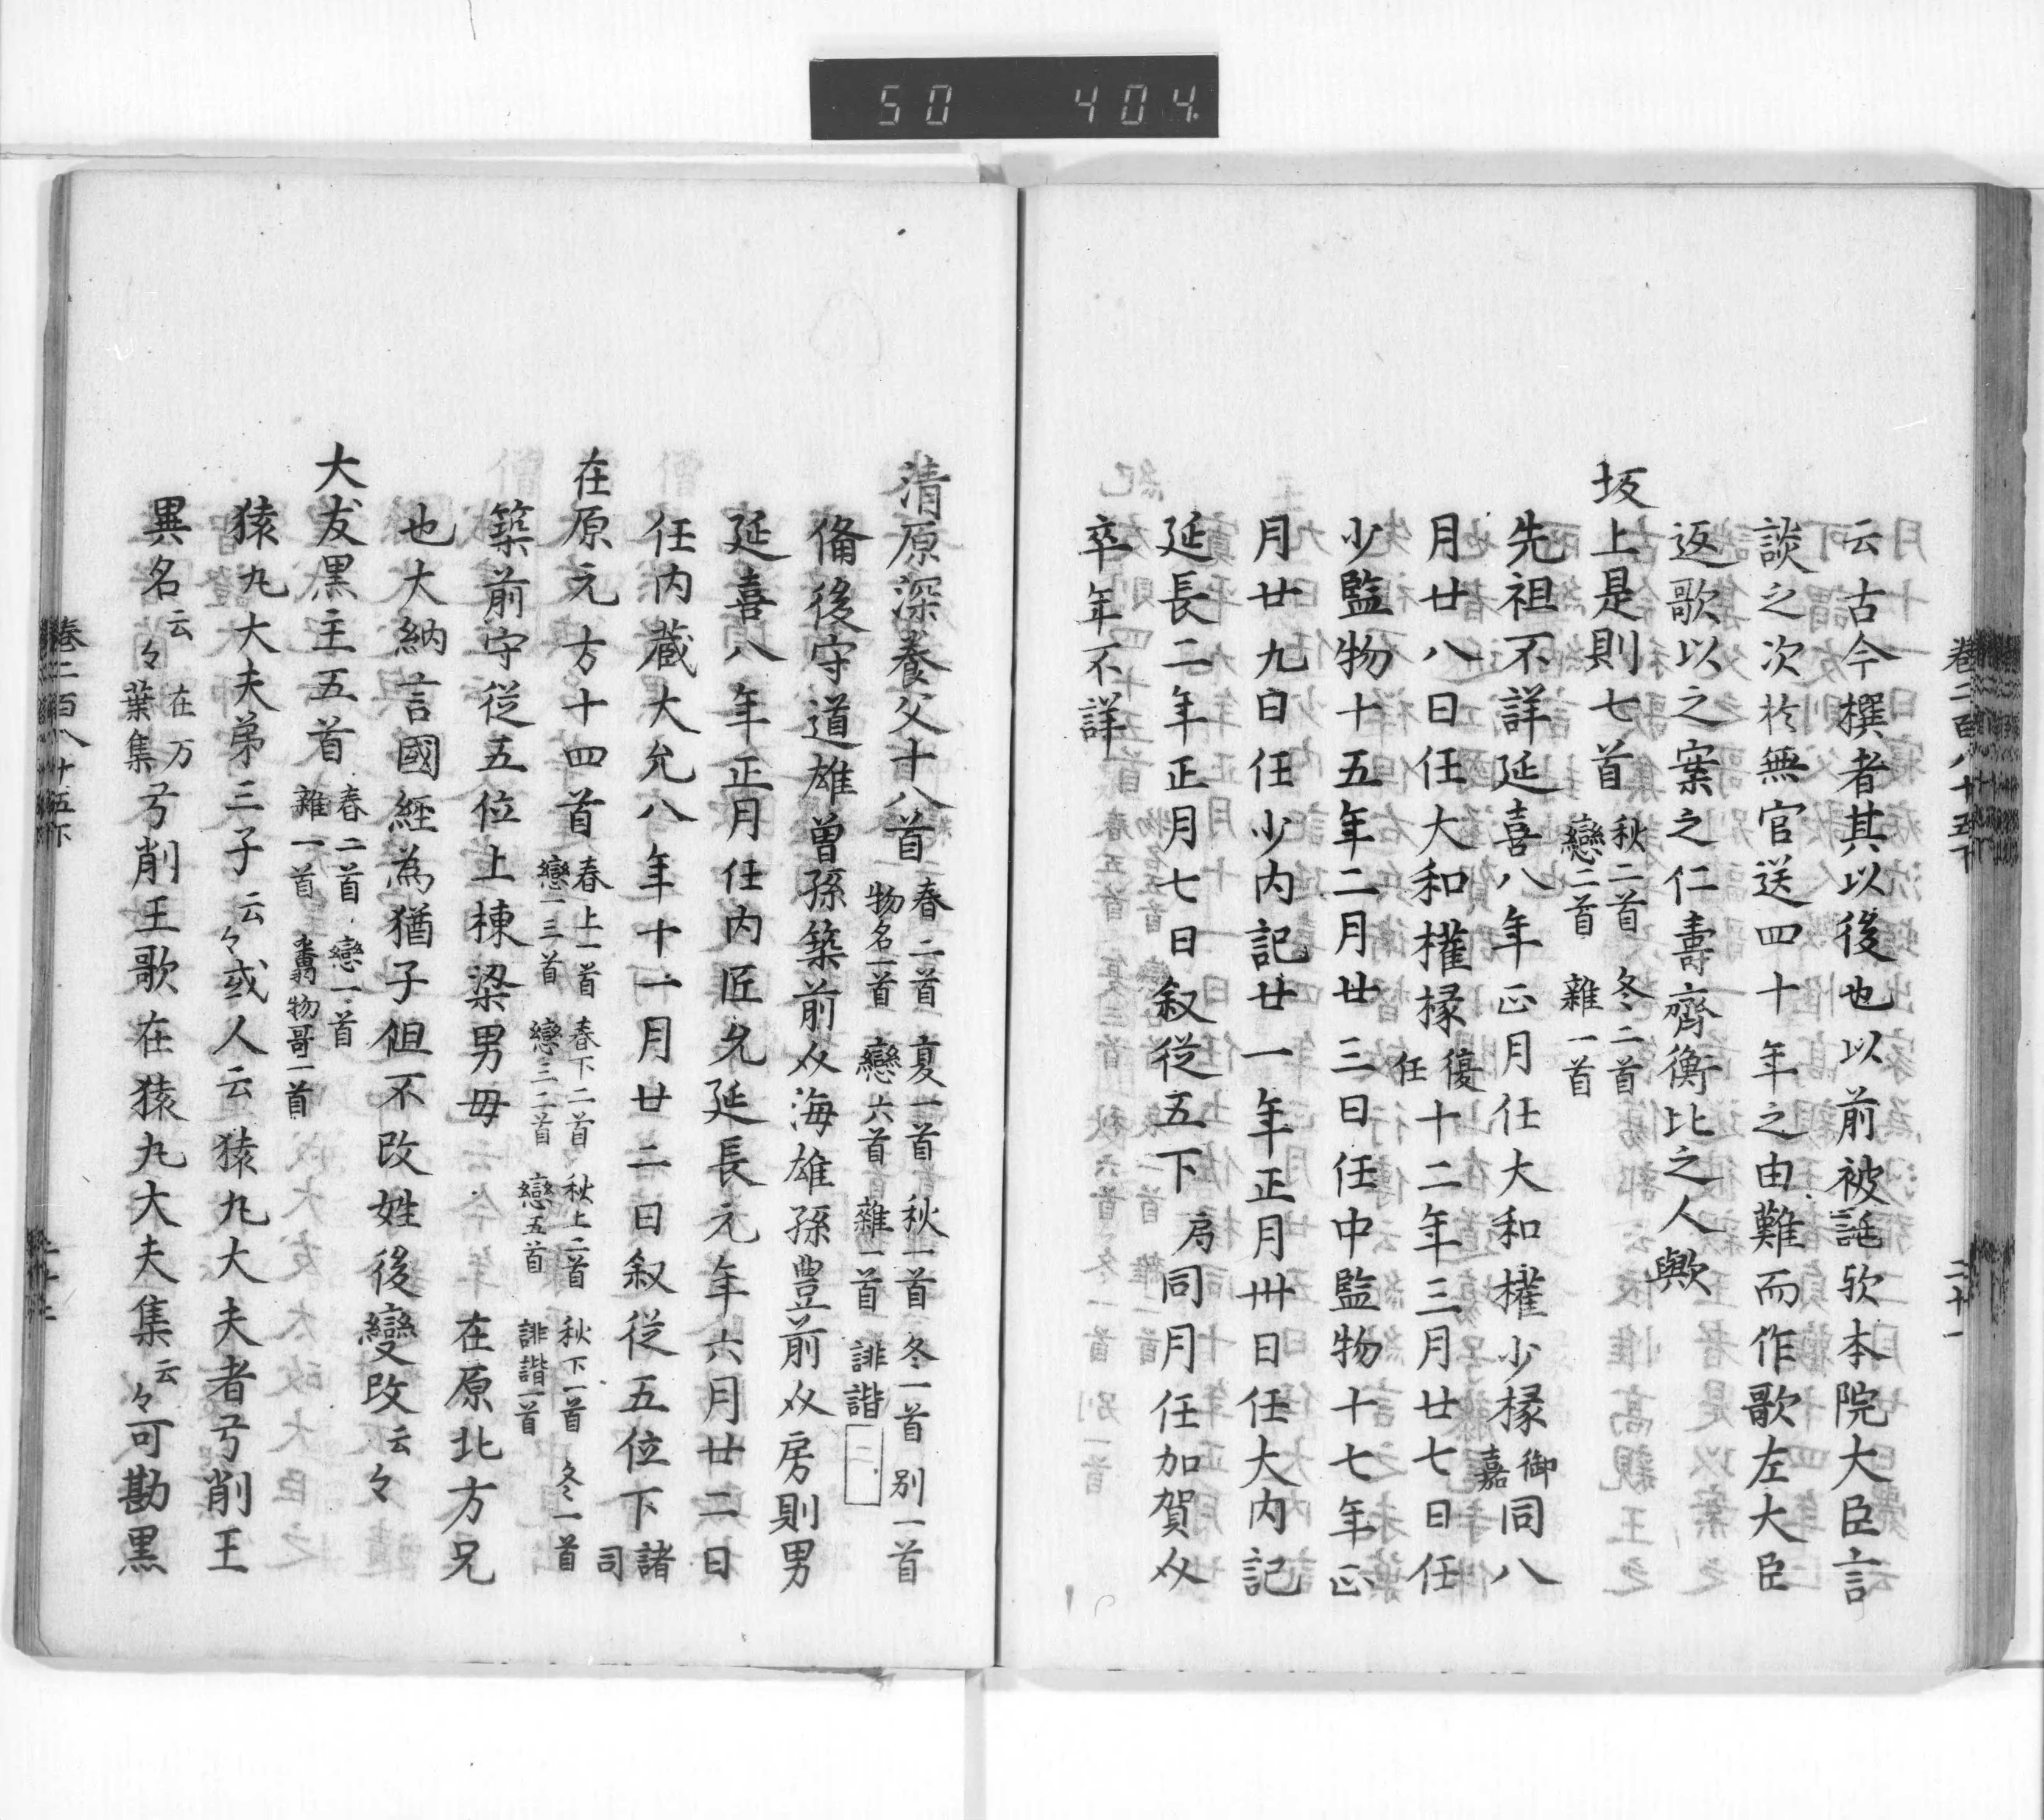 50 404
巻二百八十五下 二十一
云古今撰者其以後也以前被託欤本院大臣言
談之次於無官送四十年之由難而作歌左大臣
返歌以之案之仁壽齊衡比之人歟
坂上是則七首 秋二首 冬二首 戀二首 雜一首
先祖不詳延喜八年正月任大和權少掾 御嘉 同八
月廿八日任大和權掾 復任 十二年三月廿七日任
少監物十五年二月廿三日任中監物十七年正
月廿九日任少内記廿一年正月卅日任大内記
延長二年正月七日叙從五下 局 同月任加賀㚑
卒年不詳
清原深養父十八首 春二首 夏一首 秋一首 冬一首 別一首 物名一首 戀六首 雜一首 誹諧二
備後守道雄曽孫築前㚑海雄孫豊前㚑房則男
延喜八年正月任内匠允延長元年六月廿二日
任内蔵大允八年十一月廿二日叙従五位下 諸司
在原元方十四首 春上一首 春下二首 秋上二首 秋下一首 冬一首 戀一三首 戀三二首 戀五首 誹諧一首
築前守從五位上棟梁男母 在原北方兄
也大納言國經為猶子但不改姓後變改云々
大友黒主五首 春二首 戀一首 雜一首 㐂物哥一首
猿丸大夫弟三子云々或人云猿丸大夫者弓削王
異名云々 在万葉集 弓削王歌在猿丸大夫集云々可勘黒
巻二百八十五下